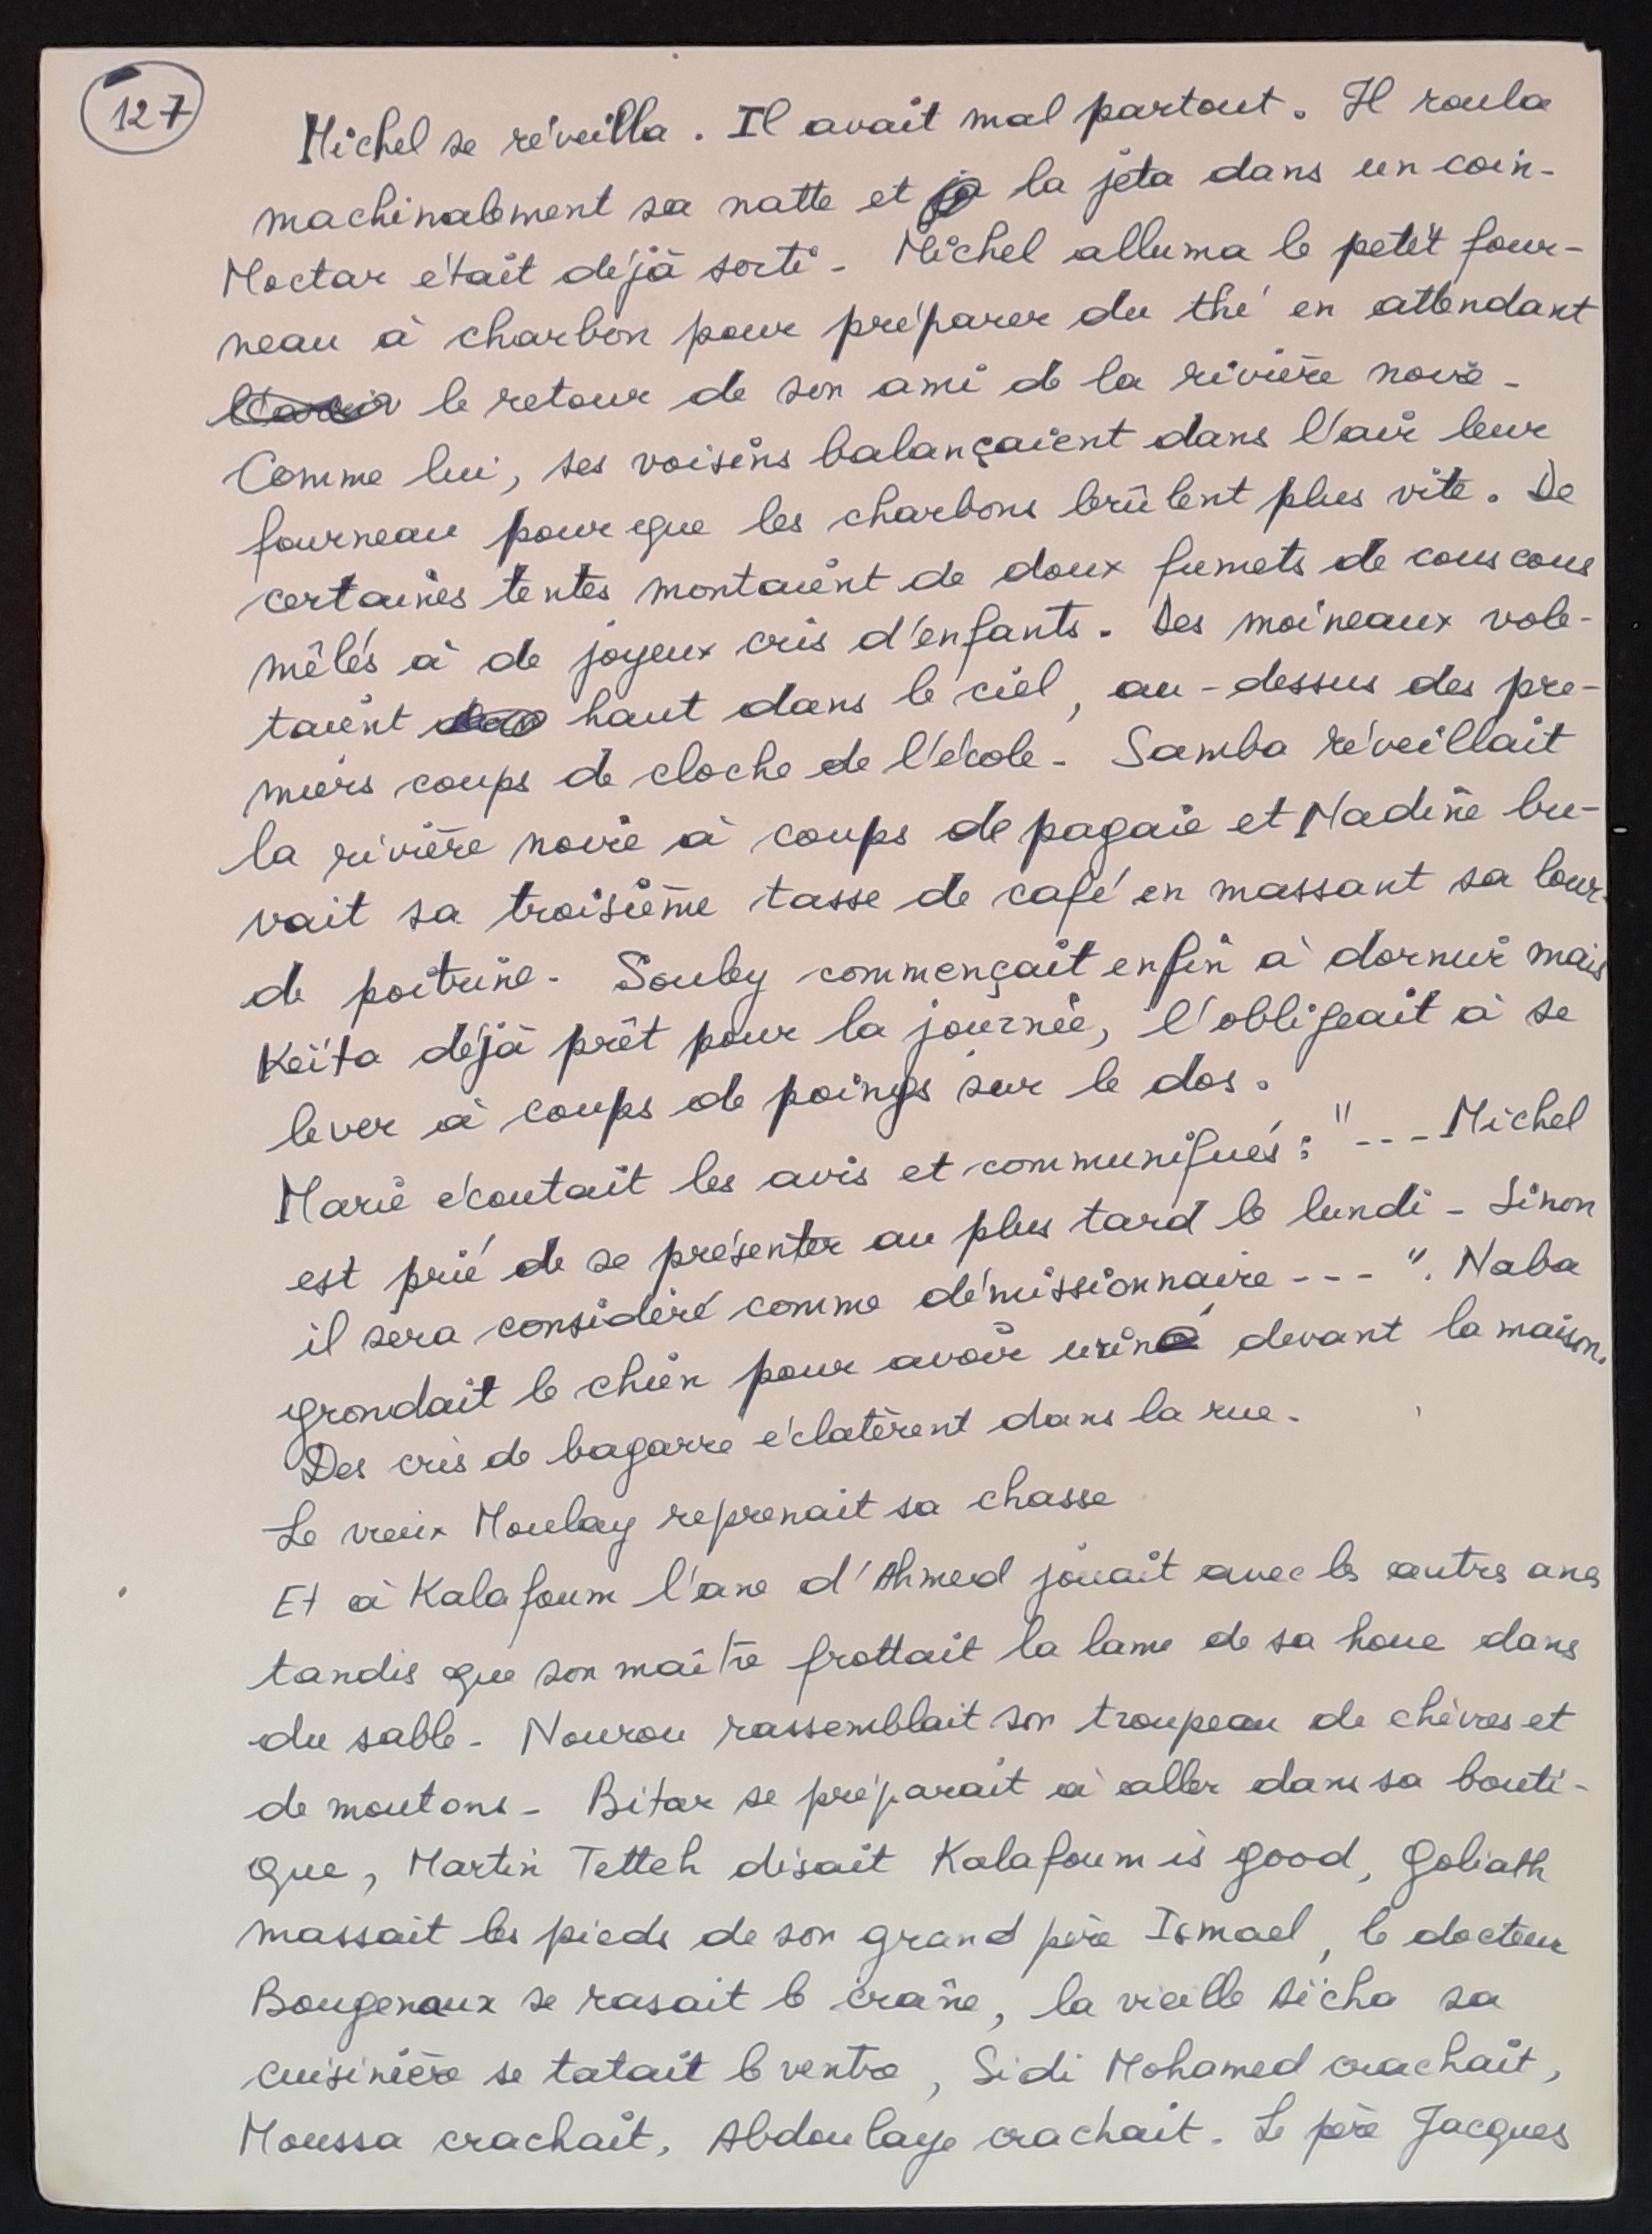 127
Michel se réveilla. Il avait mal partout. Il roula
machinalement sa natte et la jeta dans un coin.
Moctar était déjà sorti. Michel alluma le petit four-
neau à charbon pour préparer du thé en attendant
le retour de son ami de la rivière noire.
Comme lui, ses voisins balançaient dans l'air leur
fourneau pour que les charbons brûlent plus vite. De
certaines tentes montaient de doux fumets de couscous
mêlés à de joyeux cris d'enfants. Des moineaux vole-
taient haut dans le ciel, au-dessus des pre-
miers coups de cloche de l'école. Samba réveillait
la rivière noire à coups de pagaie et Nadine bu-
vait sa troisième tasse de café en massant sa lour-
de poitrine. Souley commençait enfin à dormir mais
Keïta déjà prêt pour la journée, l'obligeait à se
lever à coups de poings sur le dos.
Marie écoutait les avis et communiqués : "--- Michel
est prié de se présenter au plus tard le lundi - Sinon
il sera considéré comme démissionnaire --- ". Naba
grondait le chien pour avoir uriné devant la maison.
Des cris de bagarre éclatèrent dans la rue.
Le vieux Moulay reprenait sa chasse
Et à Kalafoum l'ane d'Ahmed jouait avec les autres anes
tandis que son maître frottait la lame de sa houe dans
du sable. Nourou rassemblait son troupeau de chèvres et
de moutons - Bitar se préparait à aller dans sa bouti-
que, Martin Tetteh disait Kalafoum is good, Goliath
massait les pieds de son grand père Ismael, le docteur
Bougenaux se rasait le crâne, la vieille Aïcha sa
cuisinière se tatait le ventre, Sidi Mohamed crachait,
Moussa crachait, Abdoulaye crachait. Le père Jacques